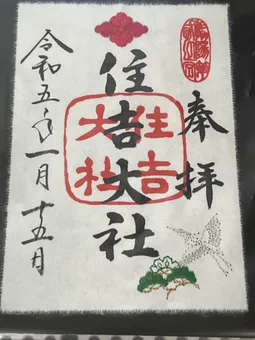 奉拝
住吉大社
住吉大社
令和五年一月十五日